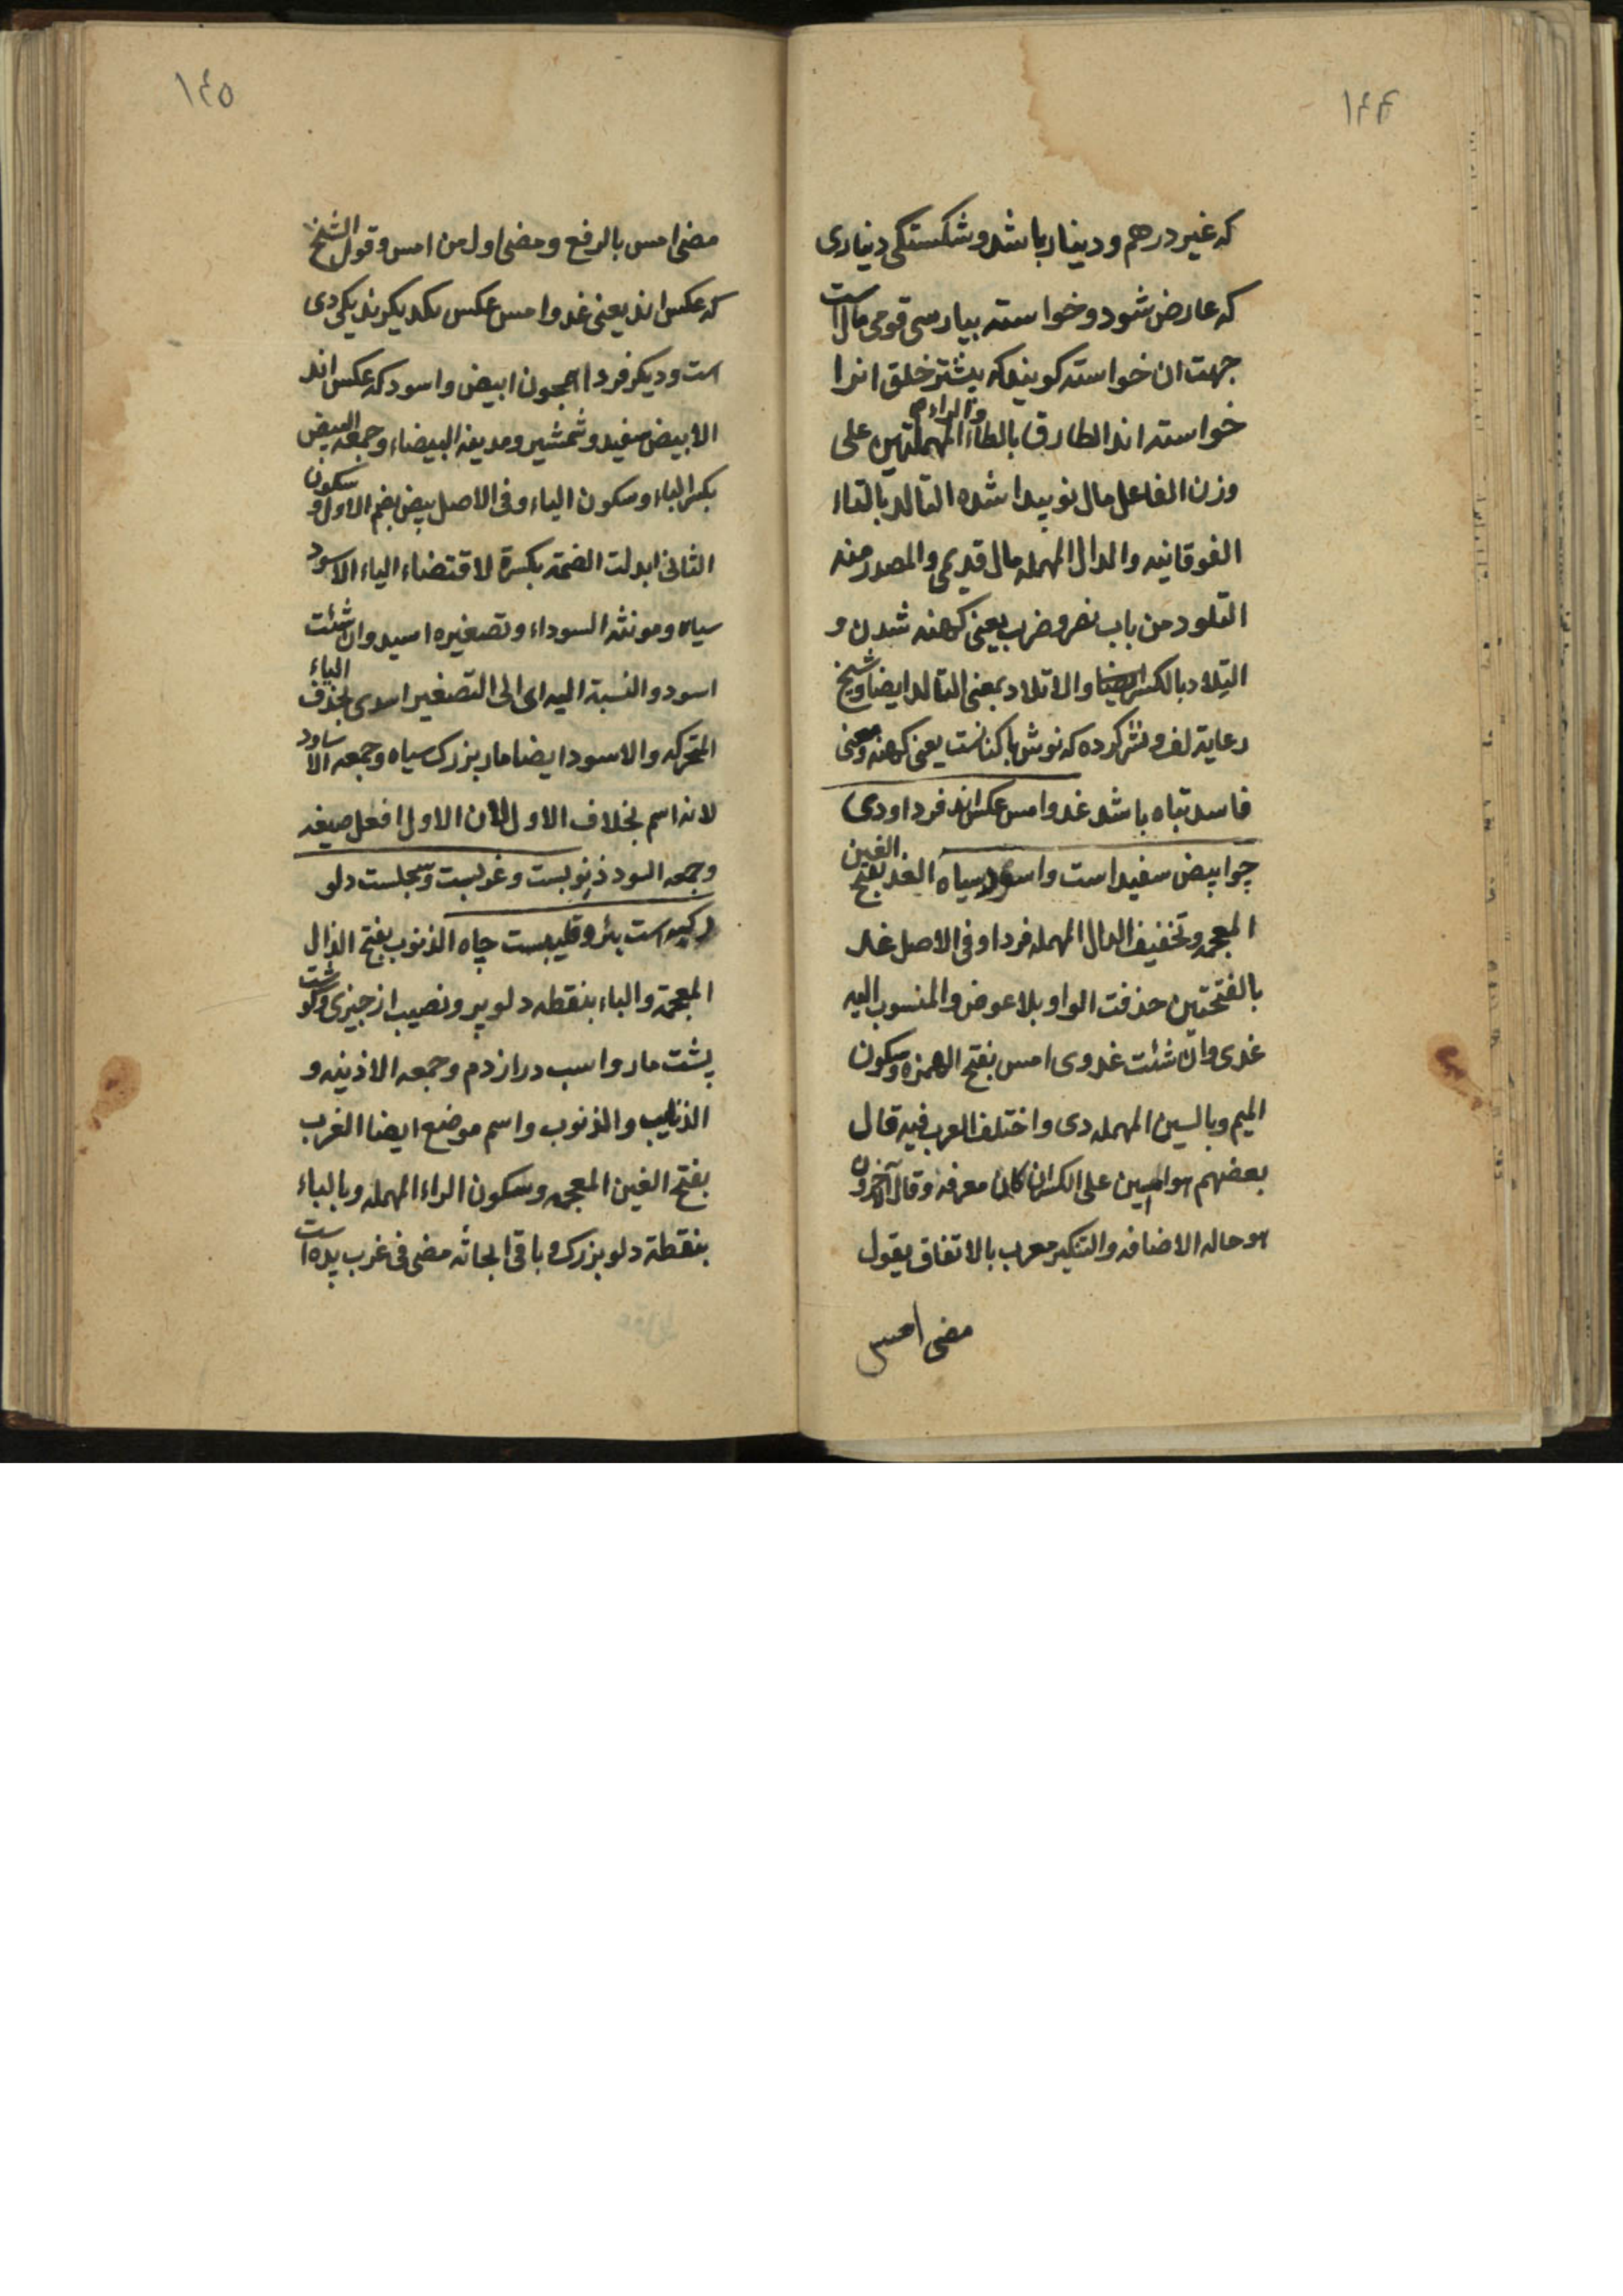 ١٤٤
که غیر درهم و دینار باشد و شکستکی دیناری
که عارض شود و خواسته بپارسی قومی مال است
جهت ان خواسته کویند که بیشتر خلق انرا
خواسته اند الطارق بالطاء والراء المهملتین علی
وزن الفاعل مال نو پیدا شده التالد بالتاء
الفوقانیه والدال المهمله مال قدیمی والمصدر منه
التلود من باب نصر و ضرب یعنی کهنه شدن و
التلاد بالکسر والاتلاد بمعنی التالد ایضا و شیخ
رعایة لف و نشر کرده که نوش با کناست یعنی کهنه و معنی
فاسد تباه باشد غد وامس عکس اند فردا و دی
چو ابیض سفید است و اسود سیاه الغد بفتح الغین
المعجمه و تخفیف الدال المهمله فردا و فی الاصل غدو
بالفتحتین حذفت الواو بلا عوض والمنسوب الیه
غدی وان شئت غدوی امس بفتح الهمزه وسکون
المیم وبالسین المهمله دی واختلف العرب فیه قال
بعضهم هو امبین علی الکسر ان کان معرفه وقال الآخرون
هو حاله الاضافه والتنکیر معرب بالاتفاق یقول
مضی امس
١٤٥
مضی امس بالرفع و مضی اول من امس و قول الشیخ
که عکس اند یعنی غد و امس عکس یکدیکرند یکی دی
است و دیکر فردا همچون ابیض و اسود که عکس اند
الابیض سفید و شمشیر و مدینه البیضاء و جمعه البیض
بکسر الباء وسکون الیاء وفی الاصل بیض بضم الاول و سکون
الثانی ابدلت الضمة بکسرة لاقتضاء الیاء الاسود
سیاه و مونثه السوداء و تصغیره اسید وان شئت
اسود والنسبة الیه ای الی التصغیر اسیدی بحذف الیاء
المتحرکه والاسود ایضا مار بزرک سیاه و جمعه الاساود
لانه اسم بخلاف الاول لان الاول افعل صیغه
وجمعه السود ذنوبست و غربست و سجلست دلو
رکیه است بئر و قلیبست چاه الذنوب بفتح الذال
المعجمة والباء بنقطه دلو پر و نصیب از چیزی و کوشت
پشت مار و اسب دراز دم و جمعه الاذنبه و
الذنایب والذنوب و اسم موضع ایضا الغرب
بفتح الغین المعجمه وسکون الراء المهمله وبالباء
بنقطة دلو بزرک و باقی ابحاثه مضی فی غرب پده است